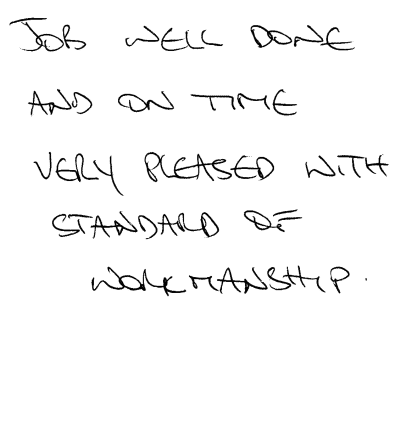 JOB WELL DONE
AND ON TIME
VERY PLEASED WITH
STANDARD OF
WORKMANSHIP.